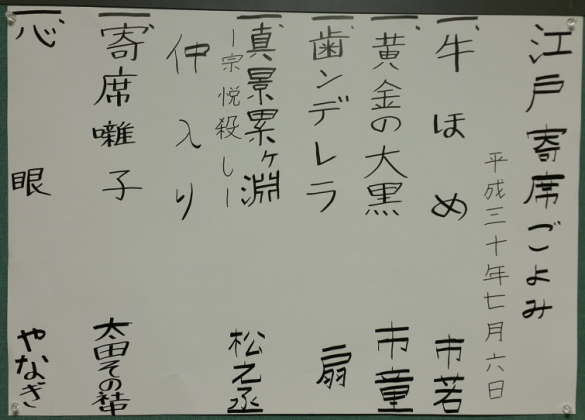 江戸寄席ごよみ
平成三十年七月六日
一、牛ほめ 市若
一、黄金の大黒 市童
一、歯ンデレラ 扇
一、真景累ヶ淵 松之丞
―宗悦殺し―
仲入り
一、寄席囃子 太田その社中
一、心眼 やなぎ